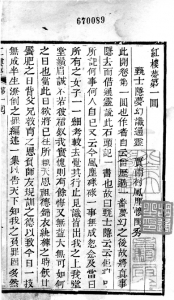 670089
紅樓夢第一回
甄士隱夢幻識通靈 賈雨村風塵懷閨秀
此開卷第一回也作者自云曾歷過一番夢幻之後故將真事
隱去而借通靈說此石頭記一書也故曰甄士隱云云但書中
所記何事何人自己又云今風塵碌碌一事無成忽念及當日
所有之女子一一細考較去覺其行止見識皆出我之上我堂
堂鬚眉誠不若彼裙釵我實愧則有餘悔又無益大無可如何
之日也當此日欲將已往所賴天恩祖德錦衣紈袴之時飫甘
饜肥之日背父兄教育之恩負師友規訓之德以致今日一技
無成半生潦倒之罪編述一集以告天下知我之負罪固多然